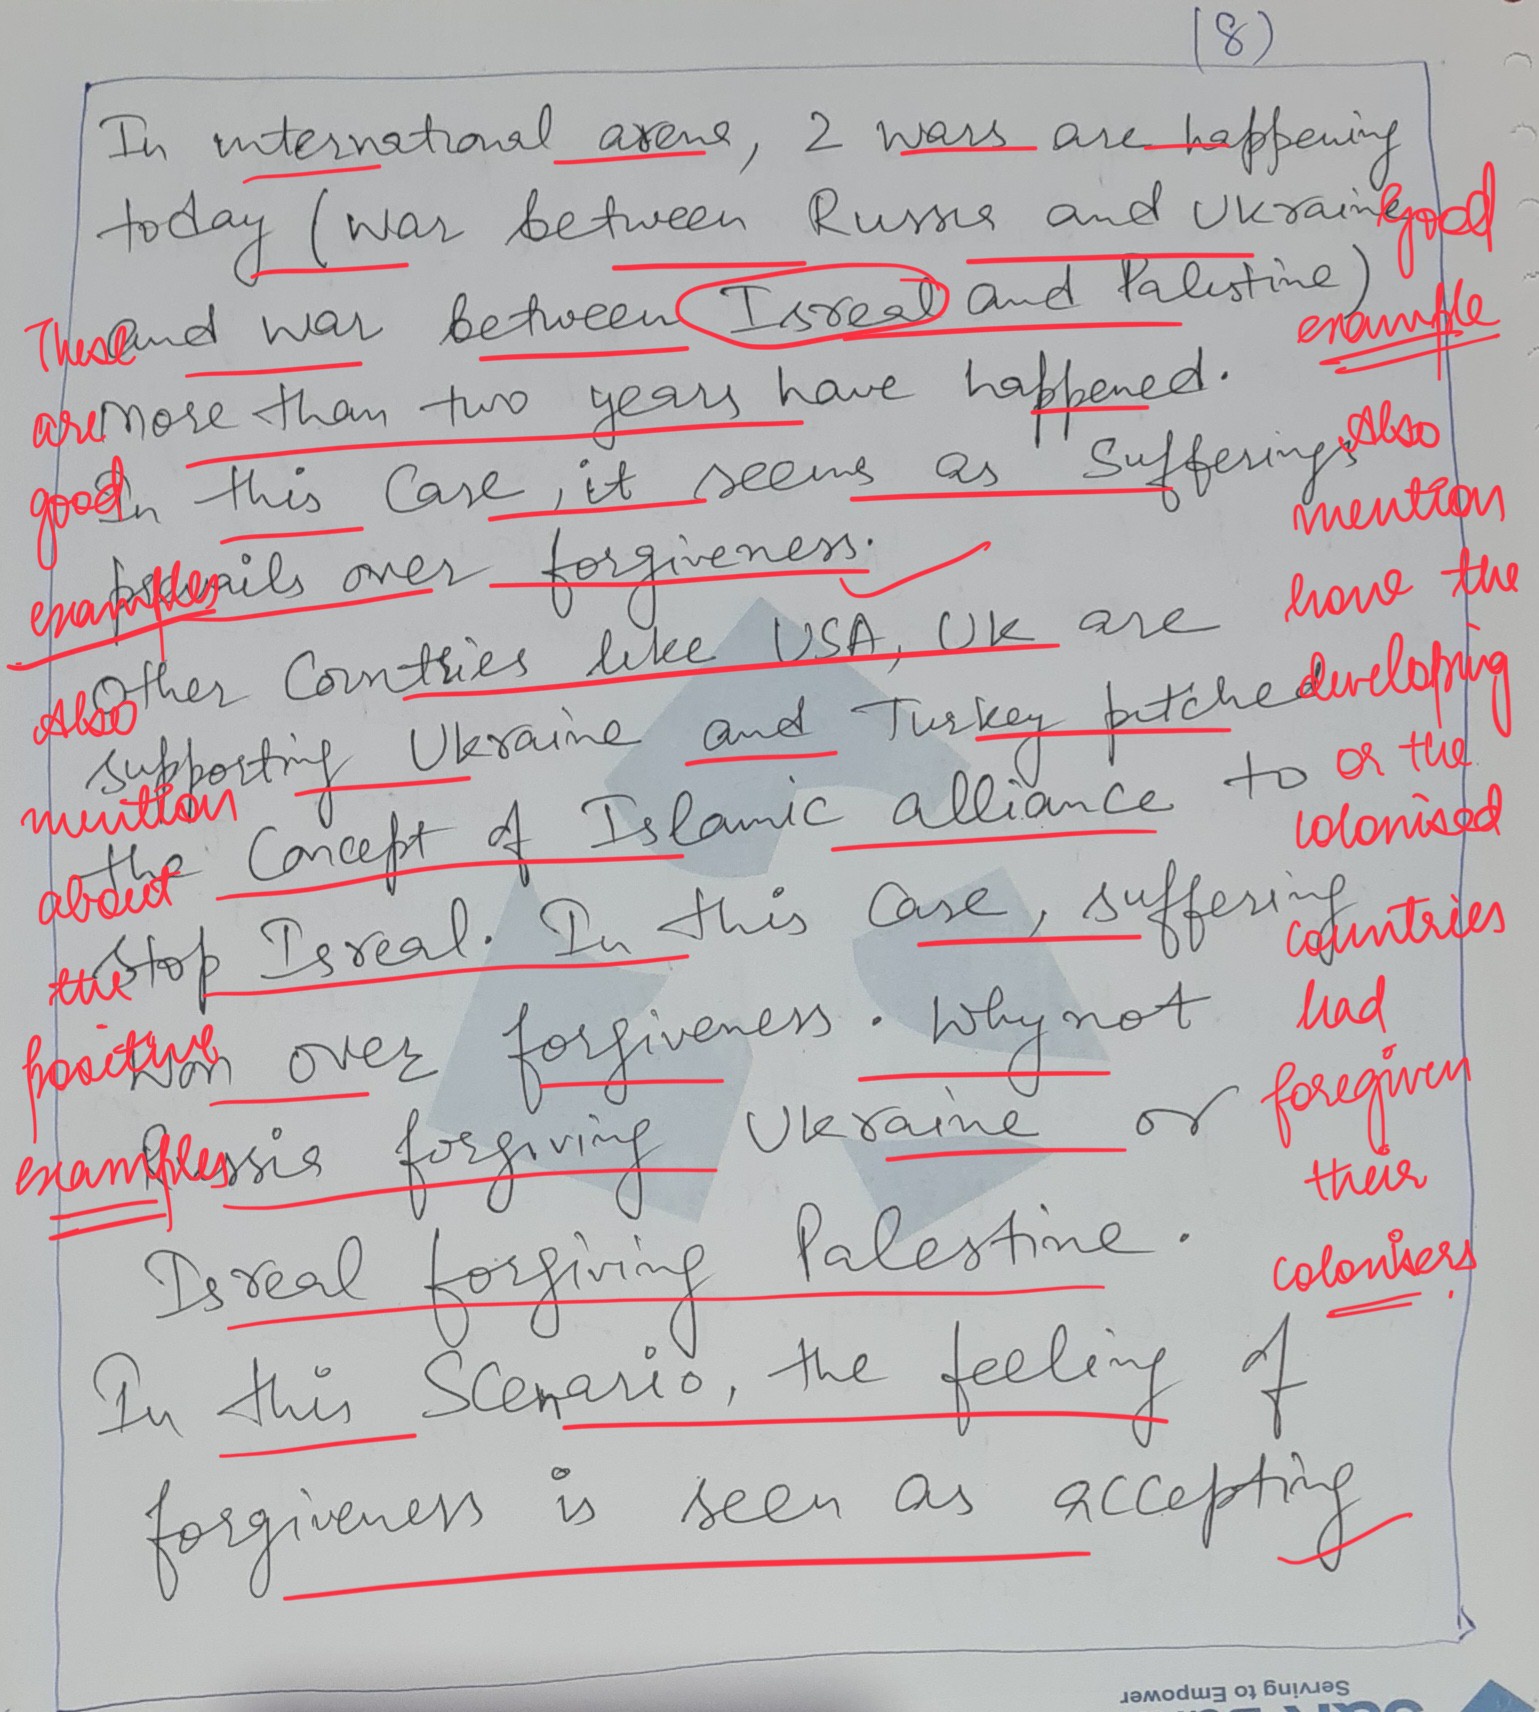 (8)
In international arena, 2 wars are happening
today (war between Russia and Ukraine
and war between Isreal and Palestine)
more than two years have happened.
In this case, it seems as sufferings
prevails over forgiveness.
Other Countries like USA, UK are
supporting Ukraine and Turkey pitched
the Concept of Islamic alliance to
stop Isreal. In this case, suffering
won over forgiveness. Why not
Russia forgiving Ukraine or
Isreal forgiving Palestine.
In this Scenario, the feeling of
forgiveness is seen as accepting
These
are
good
examples
Also
mention
about
the
positive
examples
Good
example
Also
mention
how the
developing
or the
colonised
countries
had
foregiven
their
colonisers.
Serving to Empower